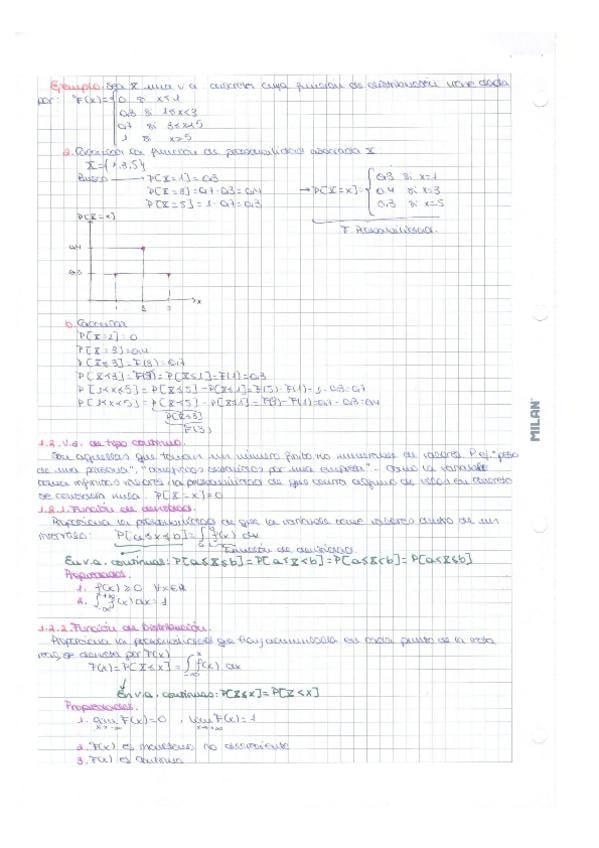 Ejemplo. Sea X una v.a. discreta cuya función de distribución viene dada
por: F(x)= 0 si x<1
0,3 si 1≤x<3
0,7 si 3≤x<5
1 si x≥5
a. Calcular la función de probabilidad asociada X
X={1,3,5}
P[X=1]=0,3
P[X=3]=0,7-0,3=0,4
P[X=5]=1-0,7=0,3
→P[X=x]= 0,3 si x=1
0,4 si x=3
0,3 si x=5
F. Probabilidad.
P[X=x]
0,4
0,3
1 3 x
b. Calcular
P[X=2]=0
P[X=3]=0,4
P[X≤3]=F(3)=0,7
P[X<3]=F(3)=P[X≤1]=F(1)=0,3
P[1<X≤5]=P[X≤5]-P[X≤1]=F(5)-F(1)=1-0,3=0,7
P[1<X<5]=P[X<5]-P[X≤1]=F(3)-F(1)=0,7-0,3=0,4
P[X≤3]
F(3)
1.2. V.a. de tipo continuo.
Son aquellas que toman un número finito no numerable de valores. P.ej. "peso
de una persona", "beneficios obtenidos por una empresa"... Como la variable
toma infinitos valores la probabilidad de que tome alguno de ellos en concreto
se considera nula. P[X=x]=0
1.2.1. Función de densidad.
Proporciona la probabilidad de que la variable tome valores dentro de un
intervalo: P[a≤X≤b]=∫f(x) dx
Función de densidad.
En v.a. continuas: P[a≤X≤b]=P[a≤X<b]=P[a<X<b]=P[a<X≤b]
Propiedades.
1. f(x)≥0 ∀x∈R
2. ∫f(x)dx=1
1.2.2. Función de Distribución.
Proporciona la probabilidad que hay acumulada en cada punto de la recta
real, se denota por F(x)
F(x)=P[X≤x]=∫f(x) dx
En v.a. continuas: P[X≤x]=P[X<x]
Propiedades.
1. lim F(x)=0 , lim F(x)=1
2. F(x) es monótona no decreciente
3. F(x) es continua
MILAN